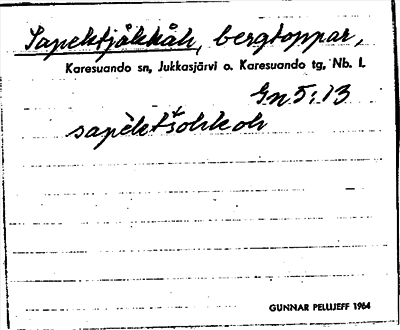 Sapektjåkkåh, bergtoppar,
Karesuando sn, Jukkasjärvi o. Karesuando tg, Nb. l.
Gn 5:13
sapèktšohkoh
GUNNAR PELLIJEFF 1964